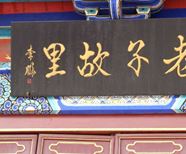 老子故里
李鹏